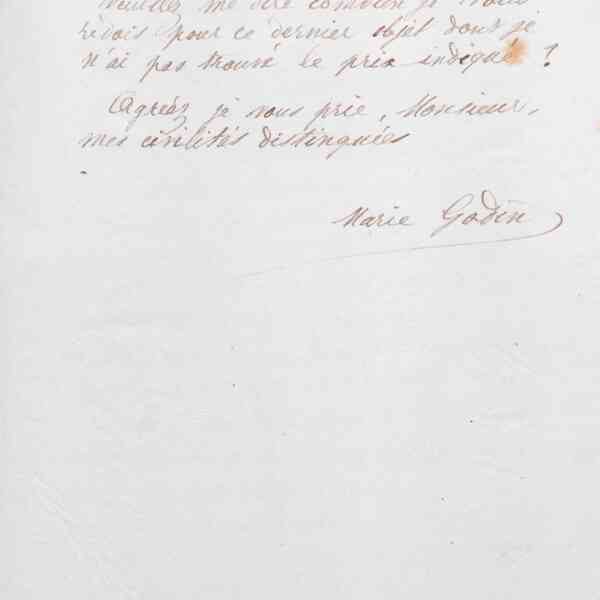 Veuillez me dire combien je vous
rèdois pour ce dernier objet dont je
n'ai pas trouvé le prix indiqué ?
Agréez je vous prie, Monsieur,
mes civilités distinguées
Marie Godin